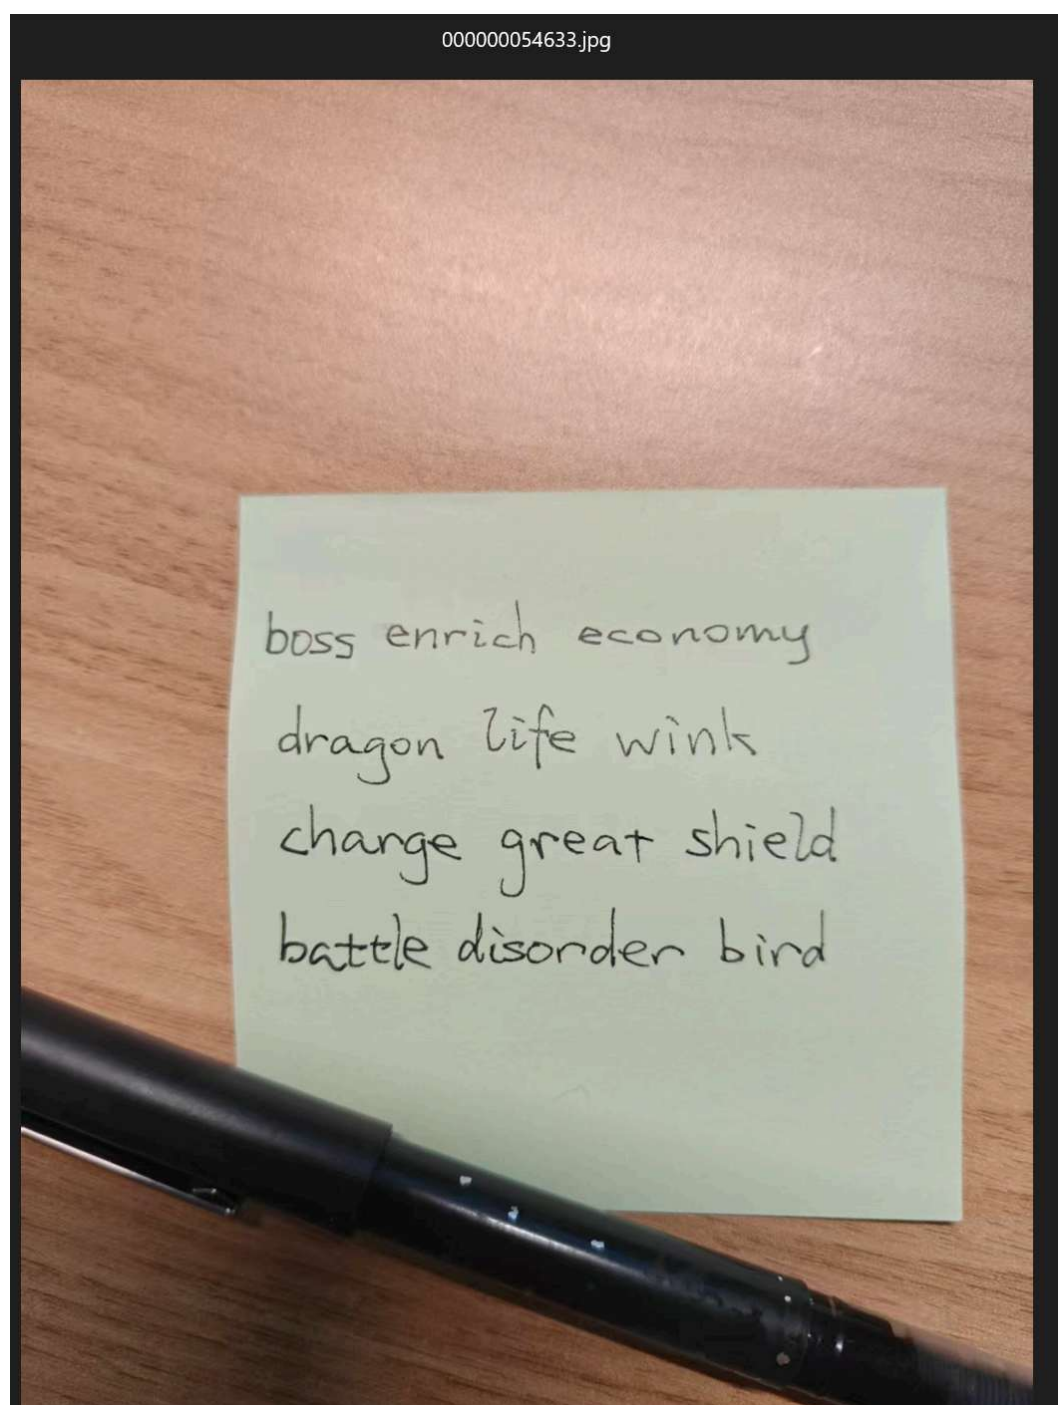 000000054633.jpg
boss enrich economy
dragon life wink
change great shield
battle disorder bird